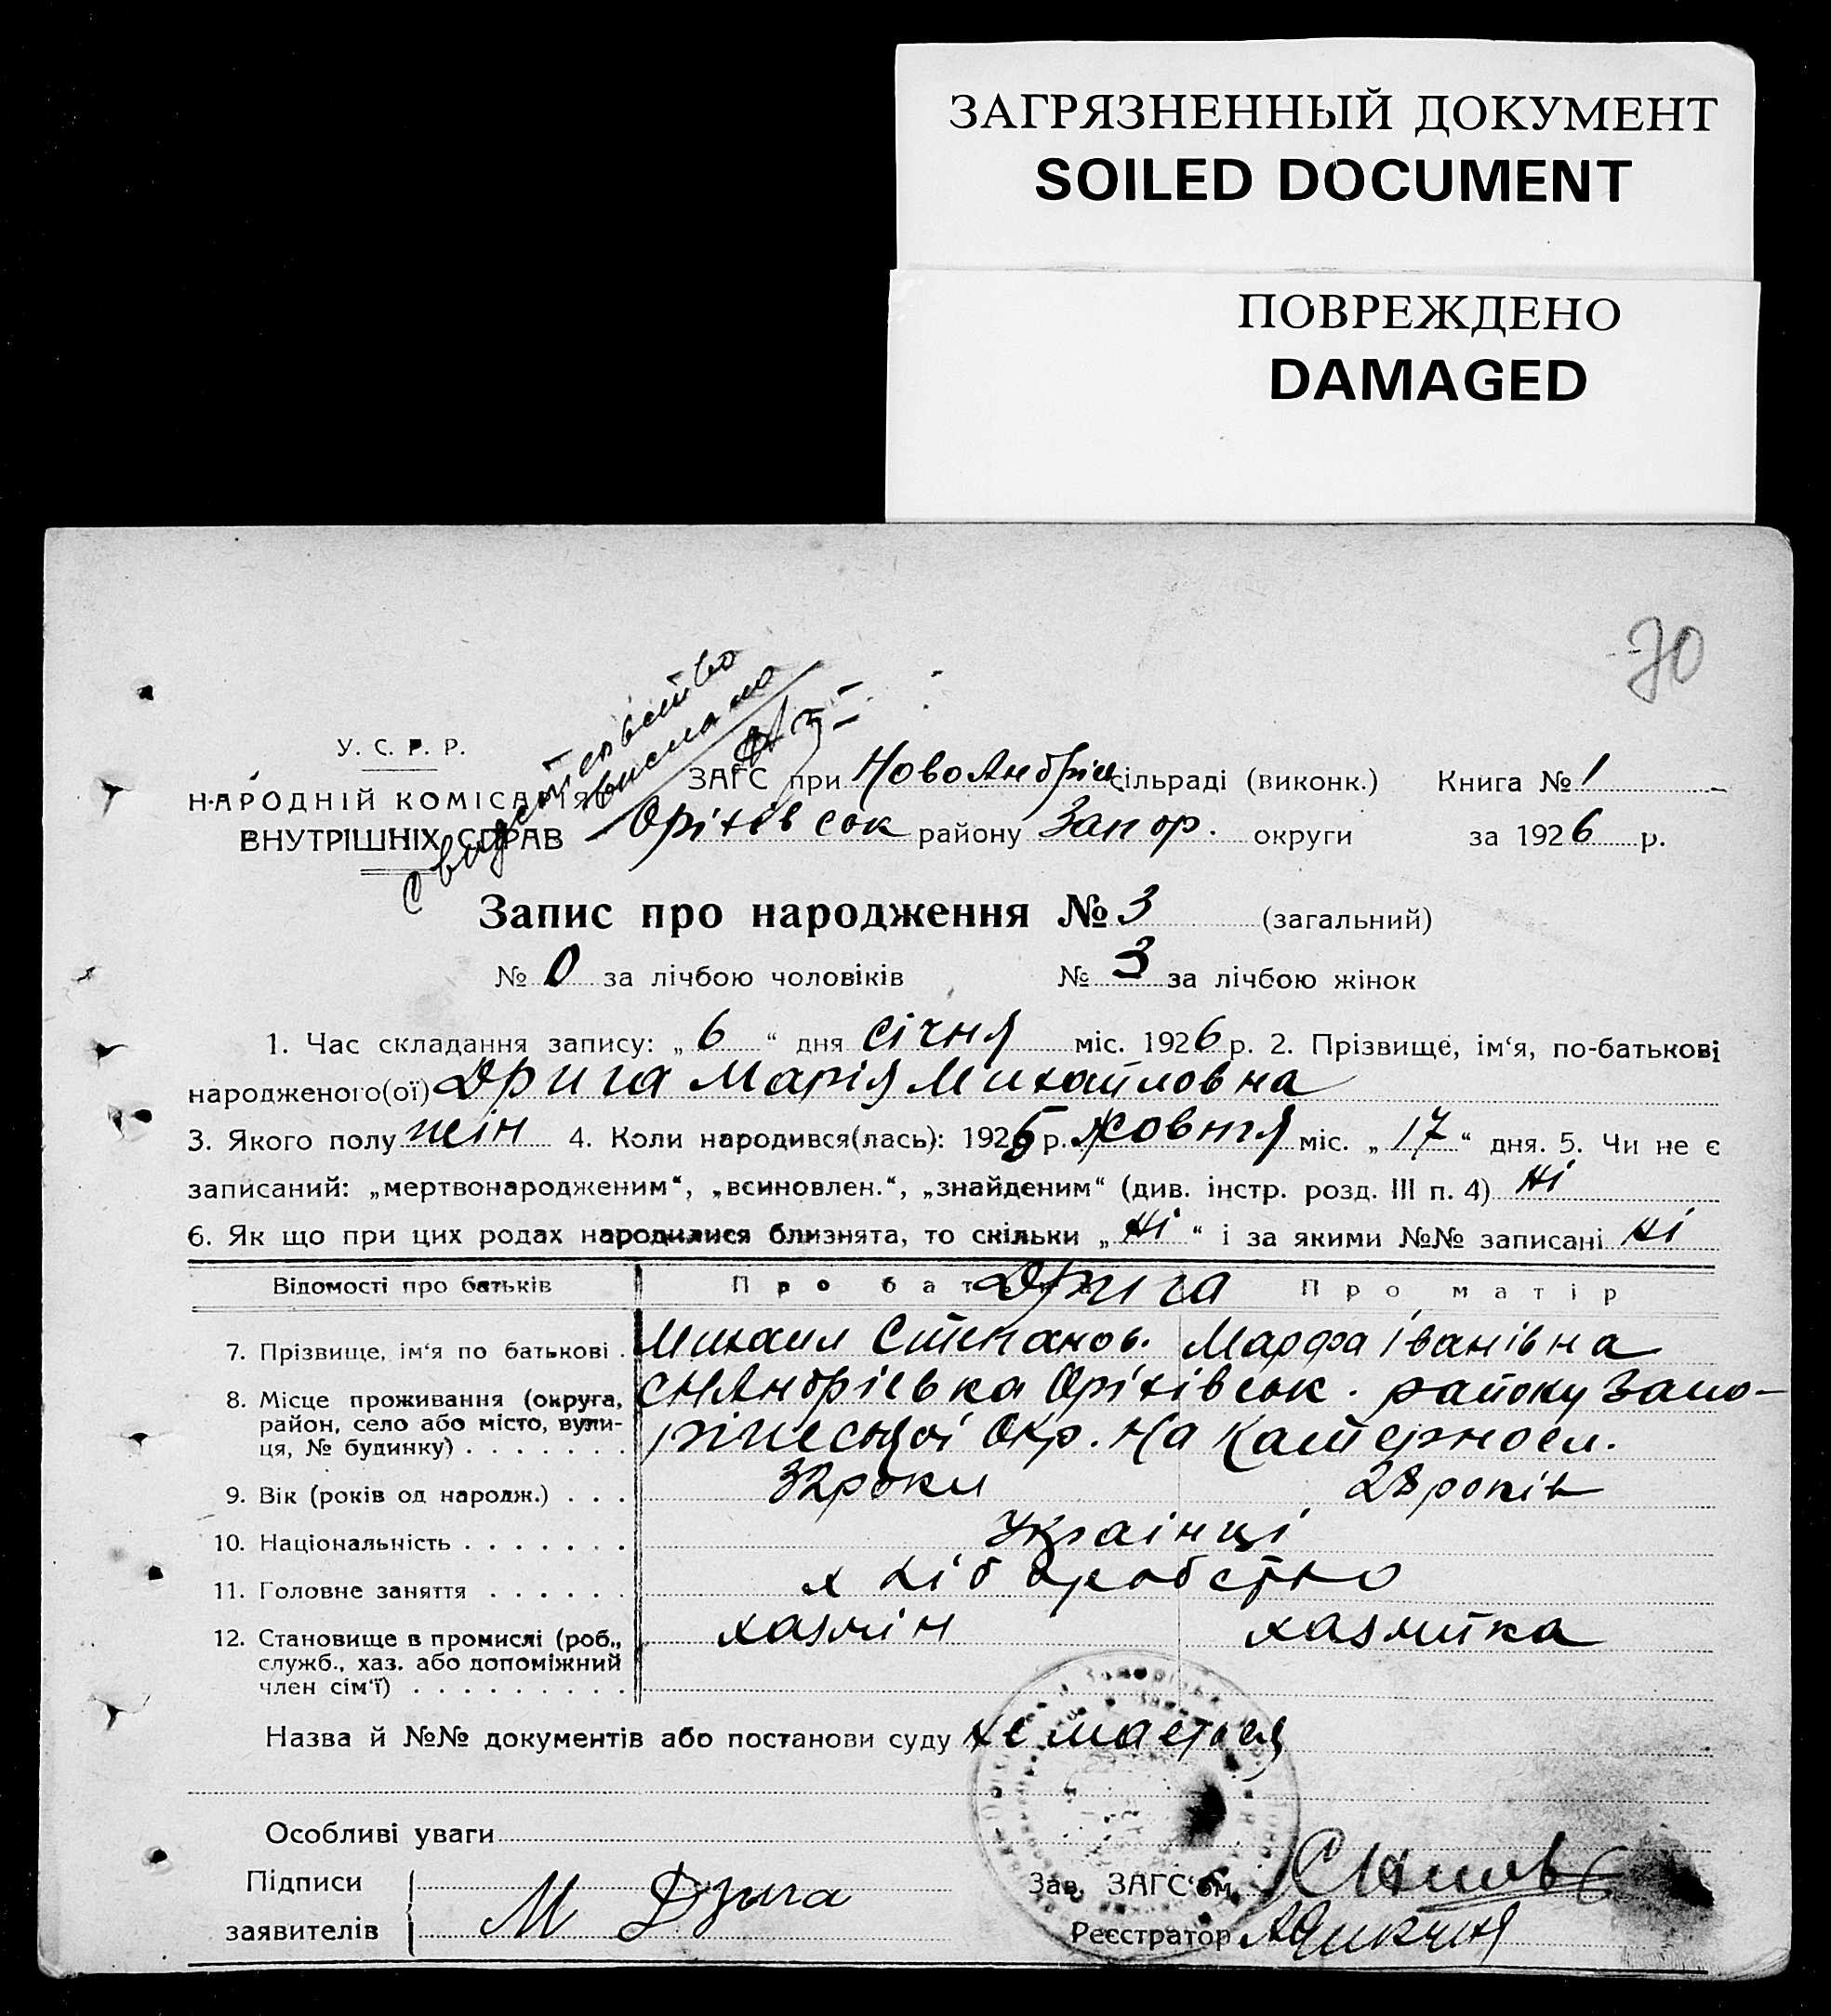 ЗАГРЯЗНЕННЫЙ ДОКУМЕНТ
SOILED DOCUMENT
ПОВРЕЖДЕНО
DAMAGED
70
У. С. Р. Р.
НАРОДНІЙ КОМІСАРІЯТ
ВНУТРІШНІХ СПРАВ
ЗАГС при НовоАндрієв сільраді (виконк.) Книга № 1
Оріхівсок району Запор. округи за 1926 р.
Запис про народження № 3 (загальний)
№ 0 за лічбою чоловіків № 3 за лічбою жінок
1. Час складання запису: „ 6 “ дня січня міс. 1926 р. 2. Прізвище, ім‘я, по-батькові
народженого(ої) Дрига Марія Михайловна
3. Якого полу жін 4. Коли народився(лась): 1925 р. жовтня міс. „ 17 “ дня. 5. Чи не є
записаний: „мертвонародженим“, „всиновлен.“, „знайденим“ (див. інстр. розд. III п. 4) Ні
6. Як що при цих родах народилися близнята, то скільки „ Ні “ і за якими №№ записані Ні
Відомості про батьків Про батька Дрига Про матір
7. Прізвище, ім‘я по батькові . Михаил Степанов. Марфа Іванівна
8. Місце проживання (округа, СНАндрієвка Оріхівсок. району Запо-
район, село або місто, вули-
ця, № будинку) . . . . . . . ріжеської Окр. На
9. Вік (років од народж.) . . . 32 роки 28 років
10. Національність . . . . . . . Українці
11. Головне заняття . . . . . . хліборобство
12. Становище в промислі (роб., хазяін хазяйка
служб., хаз. або допоміжний
член сім‘ї) . . . . . . . . .
Назва й №№ документів або постанови суду не мается
Особливі уваги
Підписи
заявителів М Дрыга
Зав. ЗАГС‘ом
Реєстратор